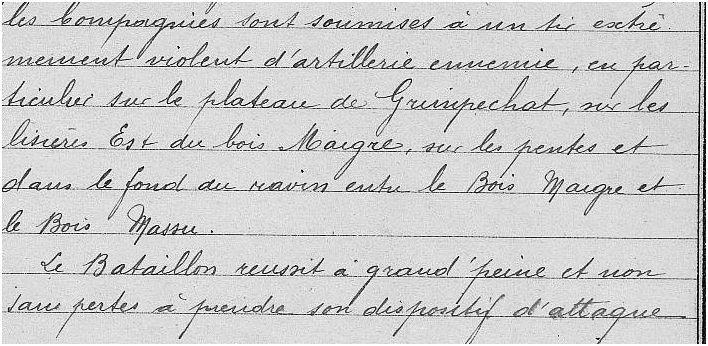 les Compagnies sont soumises à un tir extrê-
mement violent d'artillerie ennemie, en par-
ticulier sur le plateau de Grimpechat, sur les
lisières Est du bois Maigre, sur les pentes et
dans le fond du ravin entre le Bois Maigre et
le Bois Massu.
Le Bataillon reussit à grand'peine et non
sans pertes à prendre son dispositif d'attaque